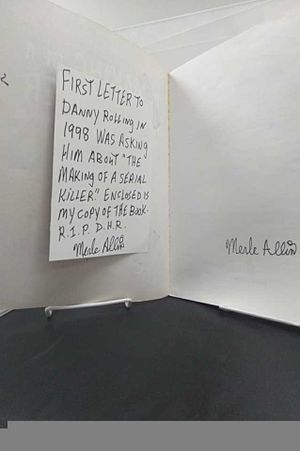 FIRST LETTER TO
DANNY ROLLING IN
1998 WAS ASKING
HIM ABOUT "THE
MAKING OF A SERIAL
KILLER." ENCLOSED IS
MY COPY OF THE BOOK.
R.I.P. D.H.R.
Merle Allin
Merle Allin